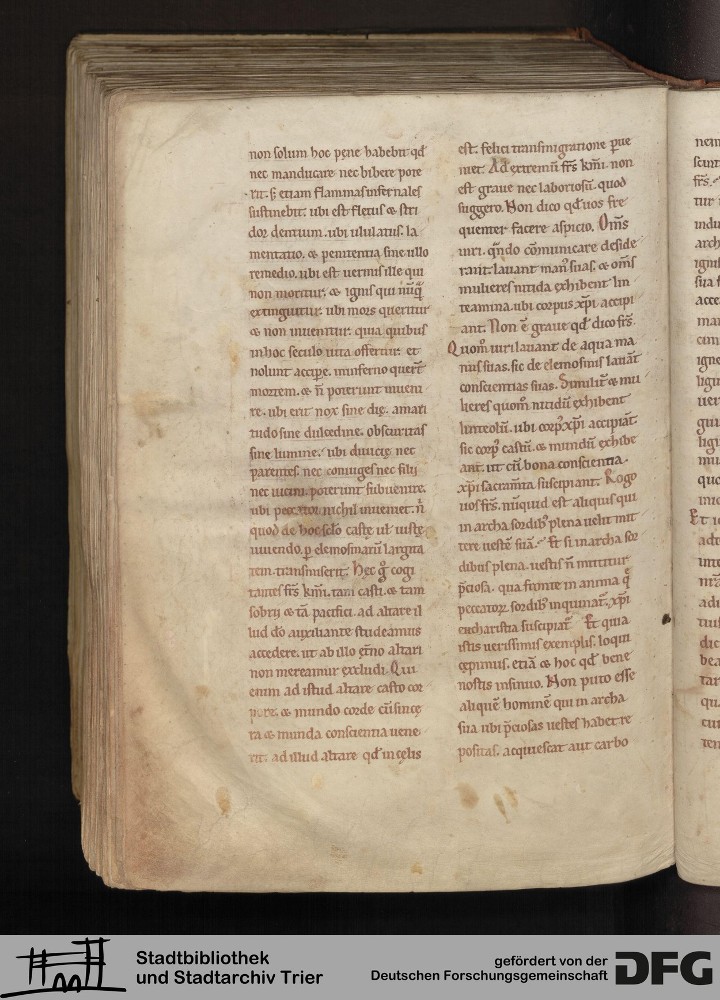 non solum hoc pęne habebit. qđ
nec manducare nec bibere pote
rit. ſ; etiam flammas infernales
sustinebit. ubi est fletus & stri
dor dentium. ubi ululatus. la
mentatio. & penitentia sine ullo
remedio. ubi est uermis ille qui
non moritur. & ignis qui nūq̄
extinguitur. ubi mors queritur
& non inuenitur. quia quibus
in hoc seculo uita offertur. et
nolunt accipe. in inferno quer̄t
mortem. & n̄ poterunt inueni
re. ubi erit nox sine die. amari
tudo sine dulcedine. obscuritas
sine lumine. ubi diuicię nec
parentes. nec coniuges nec filii
nec uicini. poterunt subuenire.
ubi peccator nichil inueniet. n̄
quod de hoc sclo castę ul iustę
uiuendo. p elemosinarū largita
tem. transmiserit. Hec g̊ cogi
tantes frs kmi. tam casti. & tam
sobrii & tā pacifici. ad altare il
lud dō auxiliante studeamus
accedere. ut ab illo ęt̄no altari
non mereamur excludi. Qui
enim ad istud altare casto cor
pore. & mundo corde cū since
ra & munda conscientia uene
rit. ad illud altare qđ in cęlis
est. felici transmigratione pue
niet. Ad extremū frs kmi. non
est graue nec laboriosū. quod
suggero. Non dico qđ uos fre
quenter facere aspicio. Om̄s
uiri. qn̄do cōmunicare deside
rant. lauant man' suas. & om̄s
mulieres nitida exhibent lin
teamina. ubi corpus xp̄i accipi
ant. Non ē graue qđ dico frs.
Quom̊ uiri lauant de aqua ma
nus suas. sic de elemosinis lauāt
conscientias suas. Similit̄ & mu
lieres quom̊ nitidū exhibent
linteolū. ubi corp' xp̄i accipiāt.
sic corp' castū. & mundū exhibe
ant. ut cū bona conscientia.
xp̄i sacram̄ta suscipiant. Rogo
uos frs. nūquid est aliquis qui
in archa sordib' plena uelit mit
tere uestē suā. Et si in archa sor
dibus plena. uestis n̄ mittitur
p̄ciosa. qua fronte in anima q̄
peccator̄ sordib' inquinat̄. xp̄i
eucharistia suscipiat̄. Et quia
istis uerissimis exemplis. loqui
cępimus. etiā & hoc qđ bene
nostis insinuo. Non puto esse
aliquē hominē qui in archa
sua ubi p̄ciosas uestes habet re
positas. acquiescat aut carbo
Stadtbibliothek
und Stadtarchiv Trier
gefördert von der
Deutschen Forschungsgemeinschaft
DFG